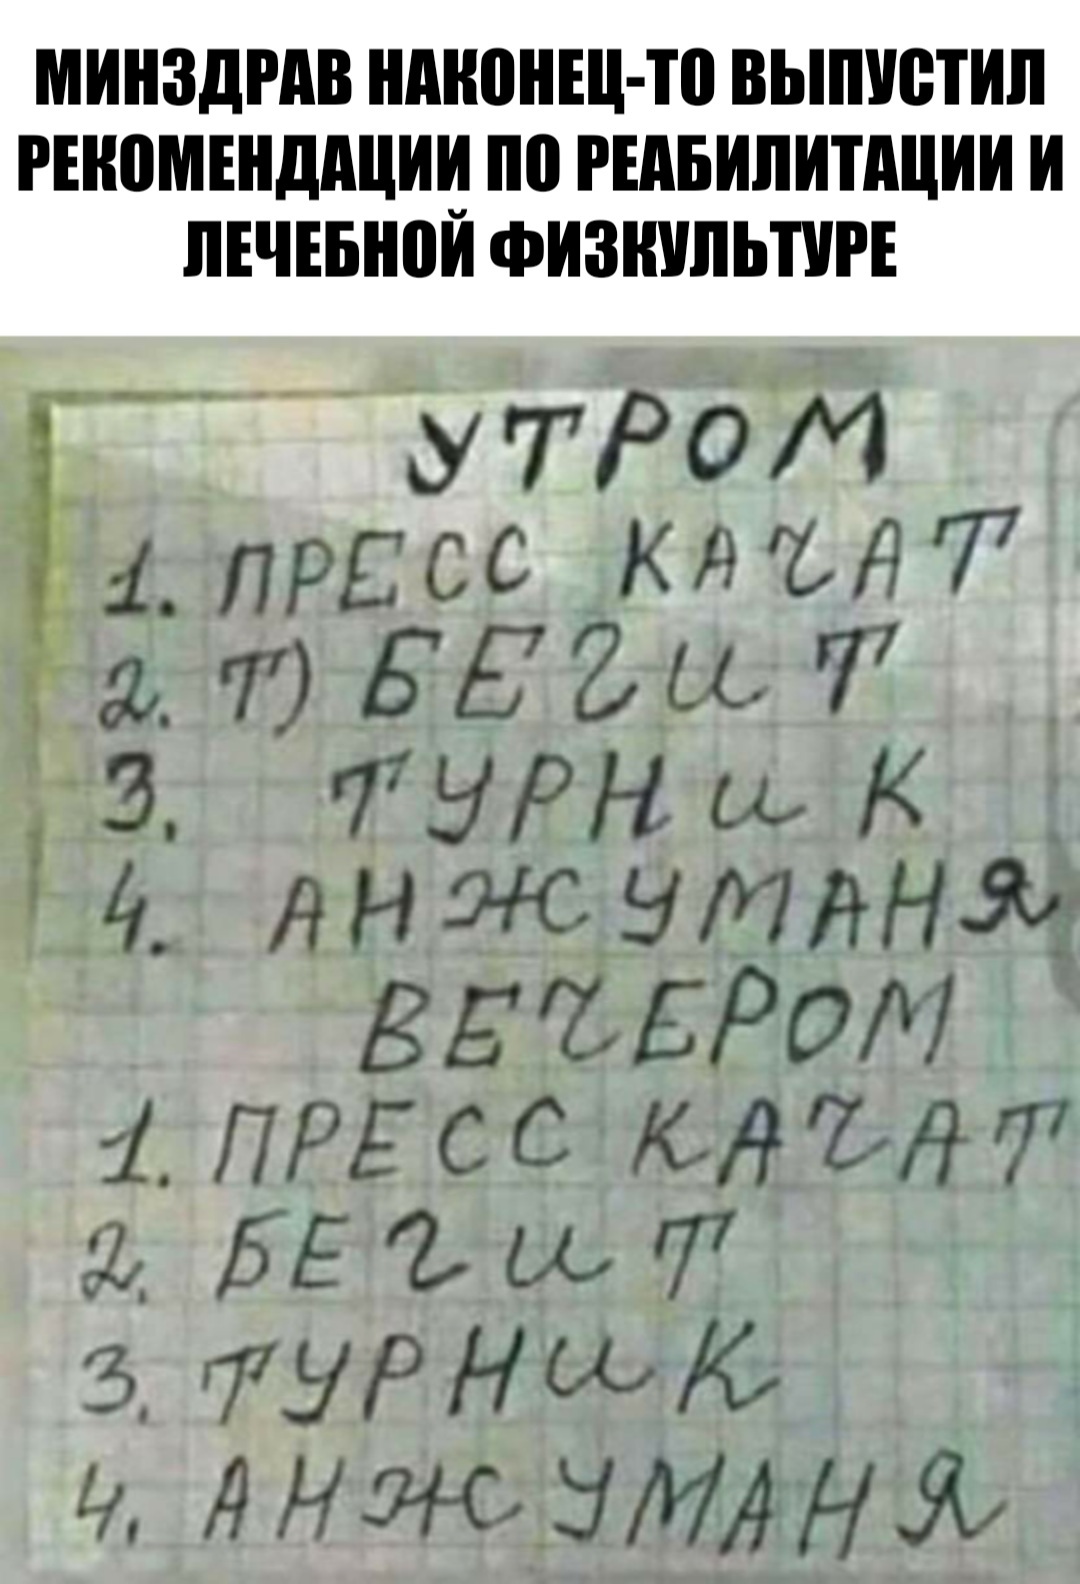 МИНЗДРАВ НАКОНЕЦ-ТО ВЫПУСТИЛ
РЕКОМЕНДАЦИИ ПО РЕАБИЛИТАЦИИ И
ЛЕЧЕБНОЙ ФИЗКУЛЬТУРЕ
УТРОМ
1. ПРЕСС КАЧАТ
2. Т) БЕГИТ
3. ТУРНИК
4. АНЖУМАНЯ
ВЕЧЕРОМ
1. ПРЕСС КАЧАТ
2. БЕГИТ
3. ТУРНИК
4. АНЖУМАНЯ